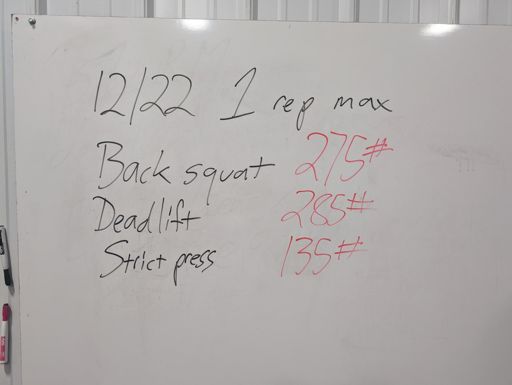 12/22 1 rep max
Back squat 275#
Deadlift 285#
Strict press 135#